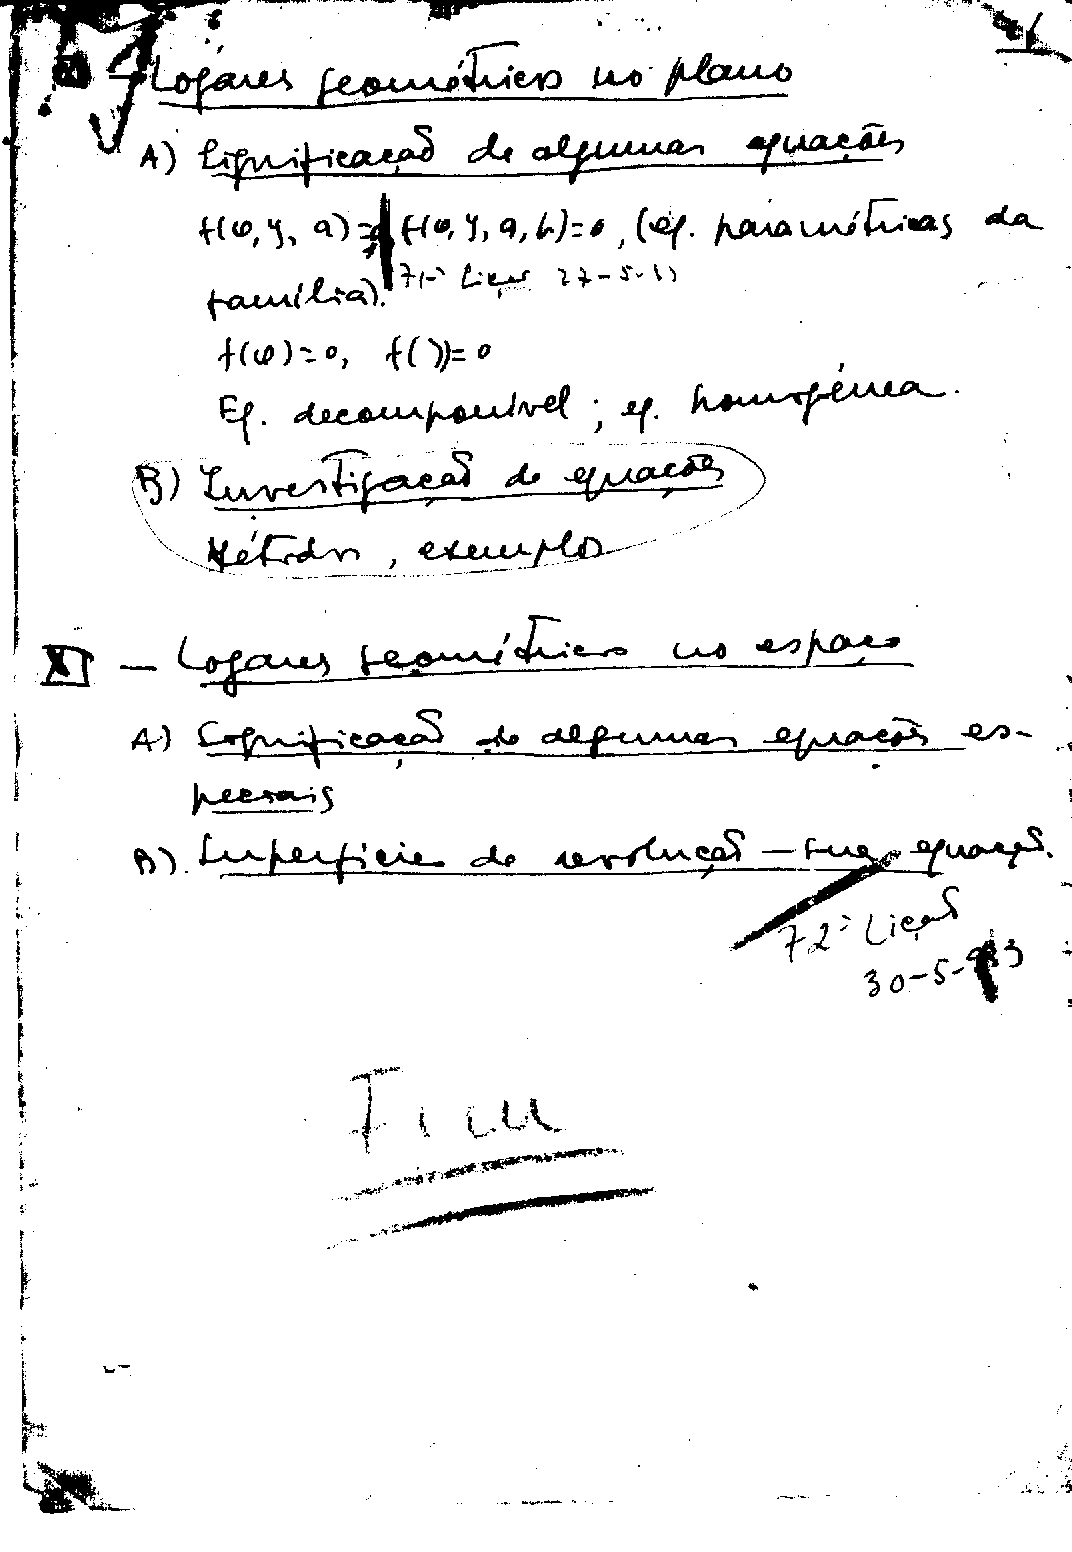 X – Logares geométricos no plano
A) Significação de algumas equações
f(φ, y, a) = 0, f(φ, y, a, b) = 0, (eq. paramétricas da
71ª Lição 27-5-
família).
f(φ) = 0, f( ) = 0
Eq. decomponível; eq. homogénea.
B) Investigação de equações
Métodos, exemplos
XI – Logares geométricos no espaço
A) Significação de algumas equações es-
peciais
B) Superfícies de revolução – sua equação.
72ª Lição
30-5-943
Fim